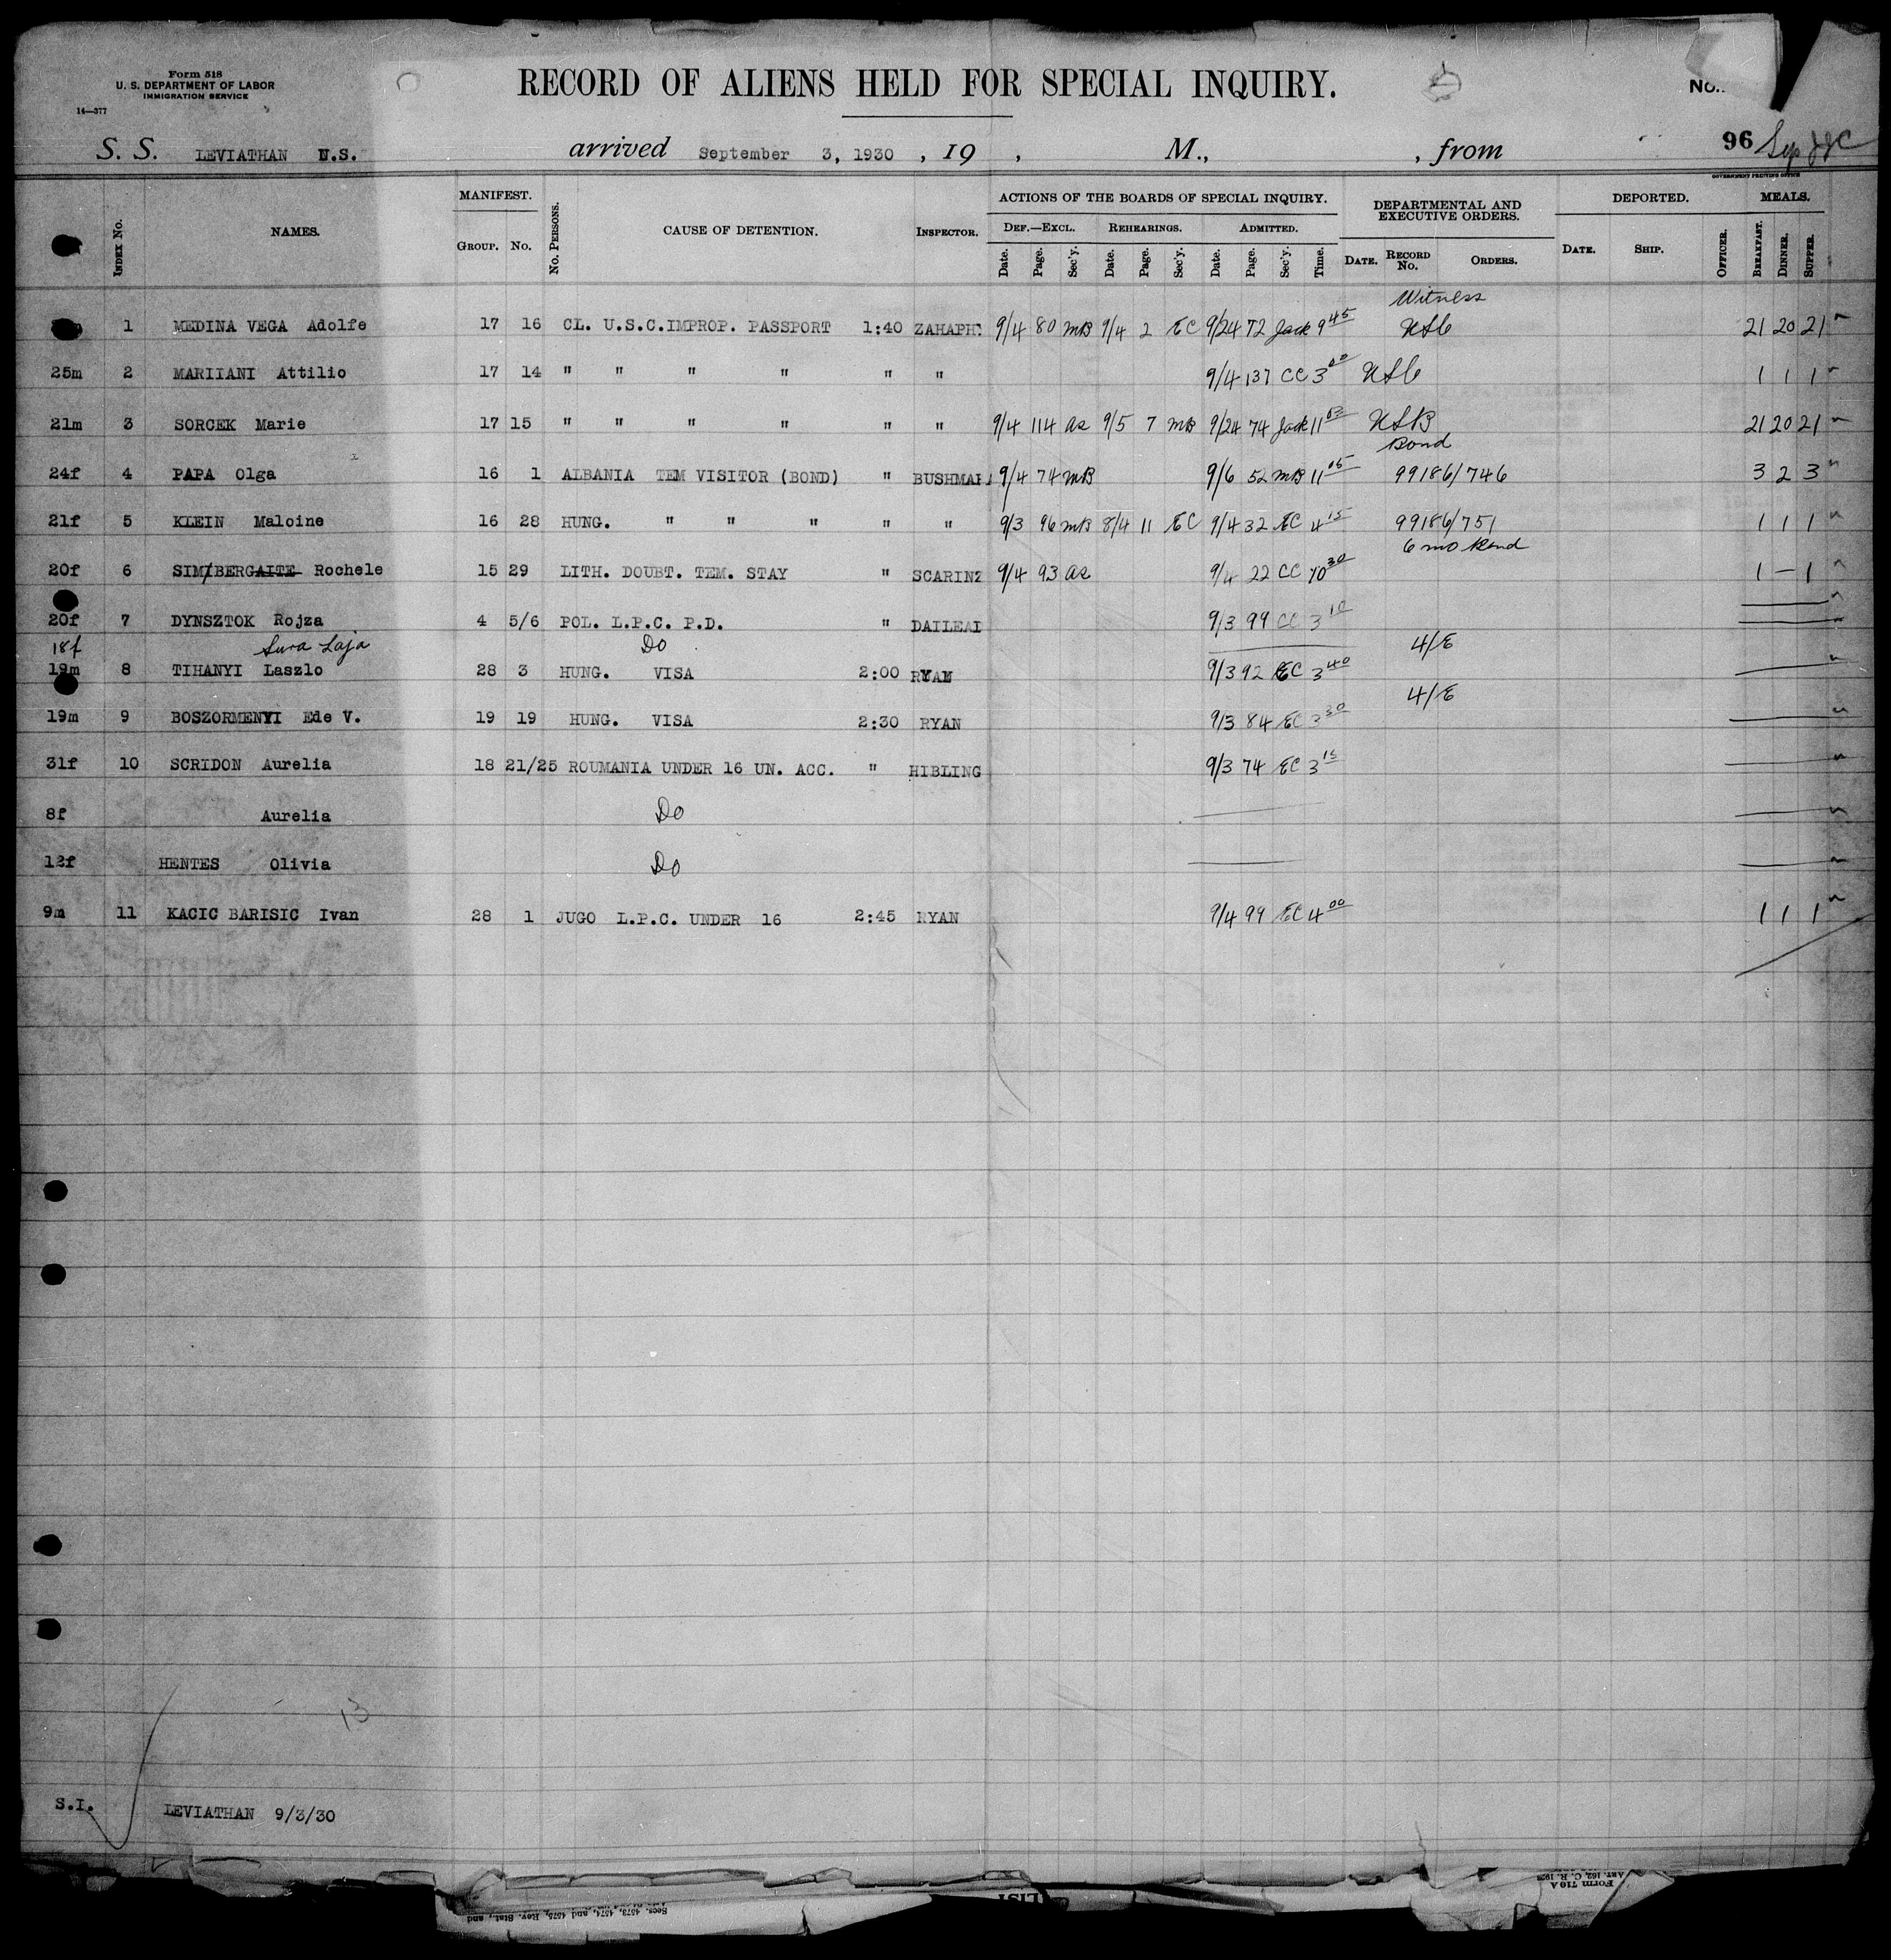 Form 518
U. S. DEPARTMENT OF LABOR
IMMIGRATION SERVICE
14—377
RECORD OF ALIENS HELD FOR SPECIAL INQUIRY.
No.
S. S. LEVIATHAN U.S. arrived September 3, 1930 , 19 , M., , from 96
GOVERNMENT PRINTING OFFICE
INDEX NO. NAMES. MANIFEST. GROUP. NO. NO. PERSONS. CAUSE OF DETENTION. INSPECTOR. ACTIONS OF THE BOARDS OF SPECIAL INQUIRY. DEPARTMENTAL AND EXECUTIVE ORDERS. DEPORTED. MEALS.
DEF.—EXCL. REHEARINGS. ADMITTED.
Date. Page. Sec'y. Date. Page. Sec'y. Date. Page. Sec'y. Time. DATE. RECORD NO. ORDERS. DATE. SHIP. OFFICER. BREAKFAST. DINNER. SUPPER.
Witness
1 MEDINA VEGA Adolfe 17 16 CL. U.S.C.IMPROP. PASSPORT 1:40 9/4 80 MB 9/4 2 EC 9/24 72 Jack 9 45 USC 21 20 21
25m 2 MARIIANI Attilio 17 14 " " " " " " 9/4 137 CC 3 00 USC 1 1 1
21m 3 SORCEK Marie 17 15 " " " " " " 9/4 114 as 9/5 7 MB 9/24 74 Jack 11 USB 21 20 21
Bond
24f 4 PAPA Olga 16 1 ALBANIA TEM VISITOR (BOND) " 9/4 74 MB 9/6 52 MB 11 05 99186/746 3 2 3
21f 5 KLEIN Maloine 16 28 HUNG. " " " " " 9/3 96 MB 8/4 11 EC 9/4 32 EC 4 15 99186/751 1 1 1
6 mo Bond
20f 6 SIM/BERGAITE Rochele 15 29 LITH. DOUBT. TEM. STAY " SCARINZ 9/4 93 as 9/4 22 CC 10 30 1 — 1
20f 7 DYNSZTOK Rojza 4 5/6 POL. L.P.C. P.D. " DAILEAD 9/3 99 CC 3 10
18f Sura Laja Do 4/E
19m 8 TIHANYI Laszlo 28 3 HUNG. VISA 2:00 RYAN 9/3 92 EC 3 40
4/E
19m 9 BOSZORMENYI Ede V. 19 19 HUNG. VISA 2:30 RYAN 9/3 84 EC 3 30
31f 10 SCRIDON Aurelia 18 21/25 ROUMANIA UNDER 16 UN. ACC. " HIBLING 9/3 74 EC 3 15
8f Aurelia Do
12f HENTES Olivia Do
9m 11 KACIC BARISIC Ivan 28 1 JUGO L.P.C. UNDER 16 2:45 RYAN 9/4 99 EC 4 00 1 1 1
13
S.I. LEVIATHAN 9/3/30
Secs. 4573, 4574, and 4575, Rev. Stat., and
LIST
Form 710 A
ART. 162, C. R. 1923